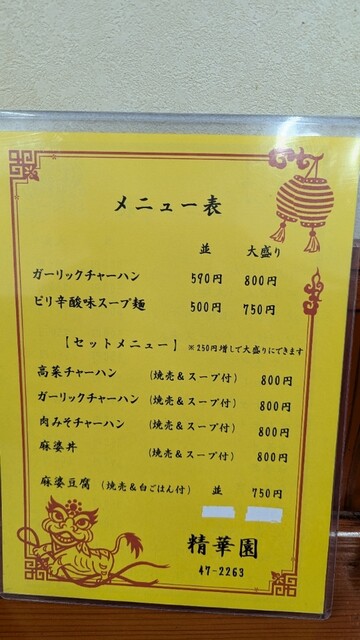 メニュー表
並 大盛り
ガーリックチャーハン 590円 800円
ピリ辛酸味スープ麺 500円 750円
【セットメニュー】 ※250円増しで大盛りにできます
高菜チャーハン (焼売＆スープ付) 800円
ガーリックチャーハン (焼売＆スープ付) 800円
肉みそチャーハン (焼売＆スープ付) 800円
麻婆丼 (焼売＆スープ付) 800円
麻婆豆腐 (焼売＆白ごはん付) 並 750円
精華園
47-2263